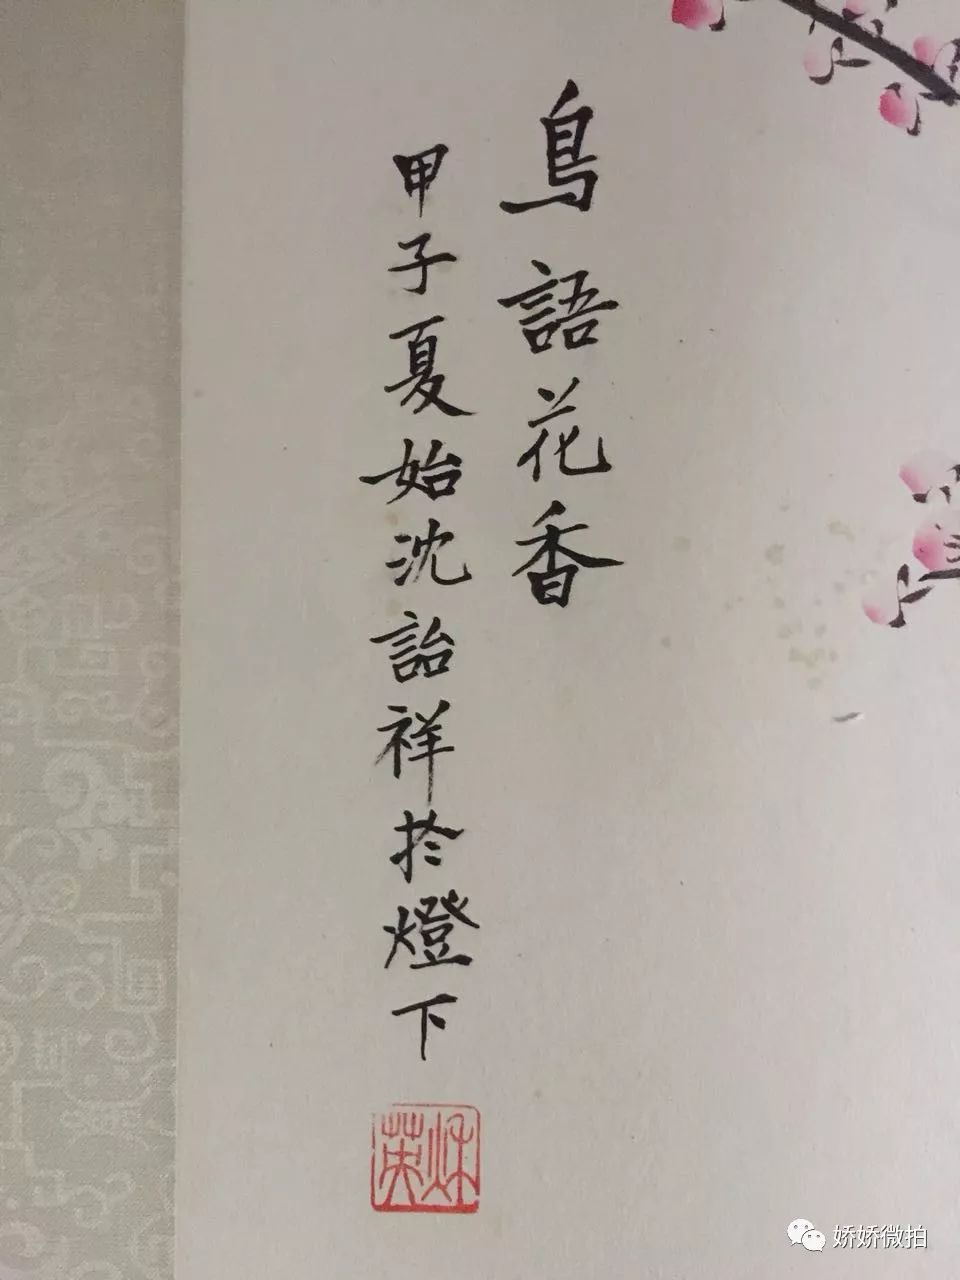 鳥語花香
甲子夏始沈詒祥於燈下
娇娇微拍